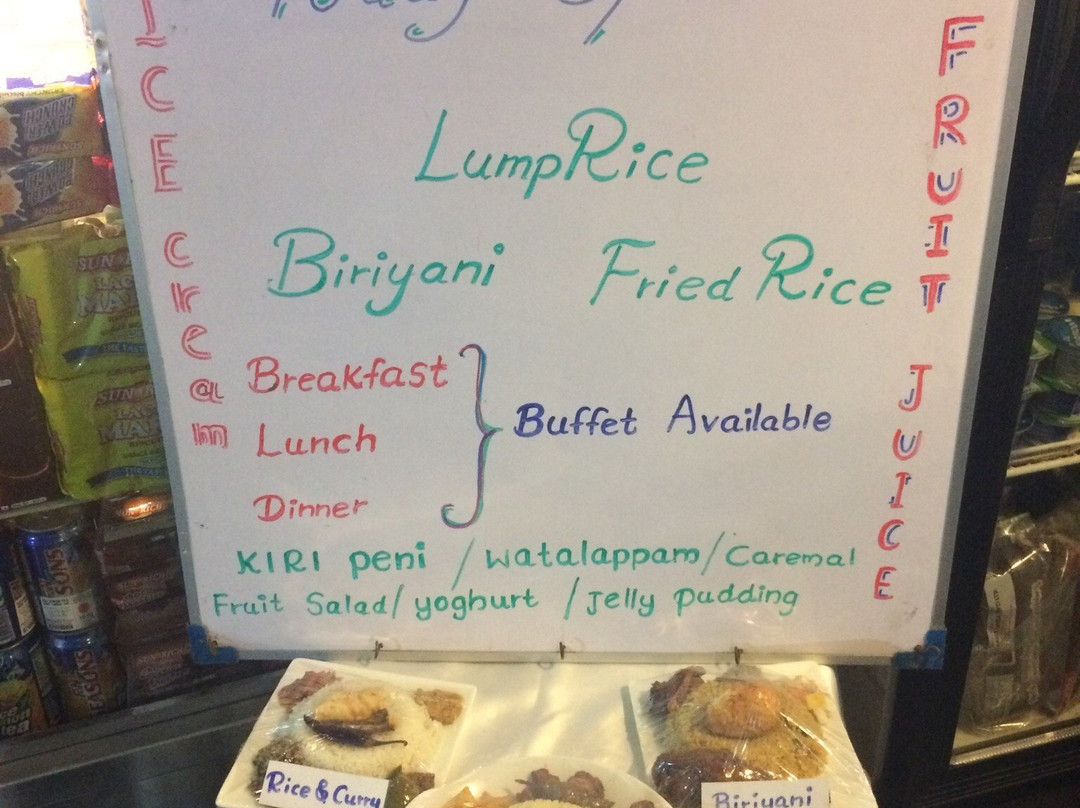 ICE cream
FRUIT JUICE
LumpRice
Biriyani Fried Rice
Breakfast
Lunch
Dinner
Buffet Available
KIRI peni / watalappam / Caremal
Fruit Salad / yoghurt / Jelly pudding
Rice & Curry
Biriyani
SUN
SUN